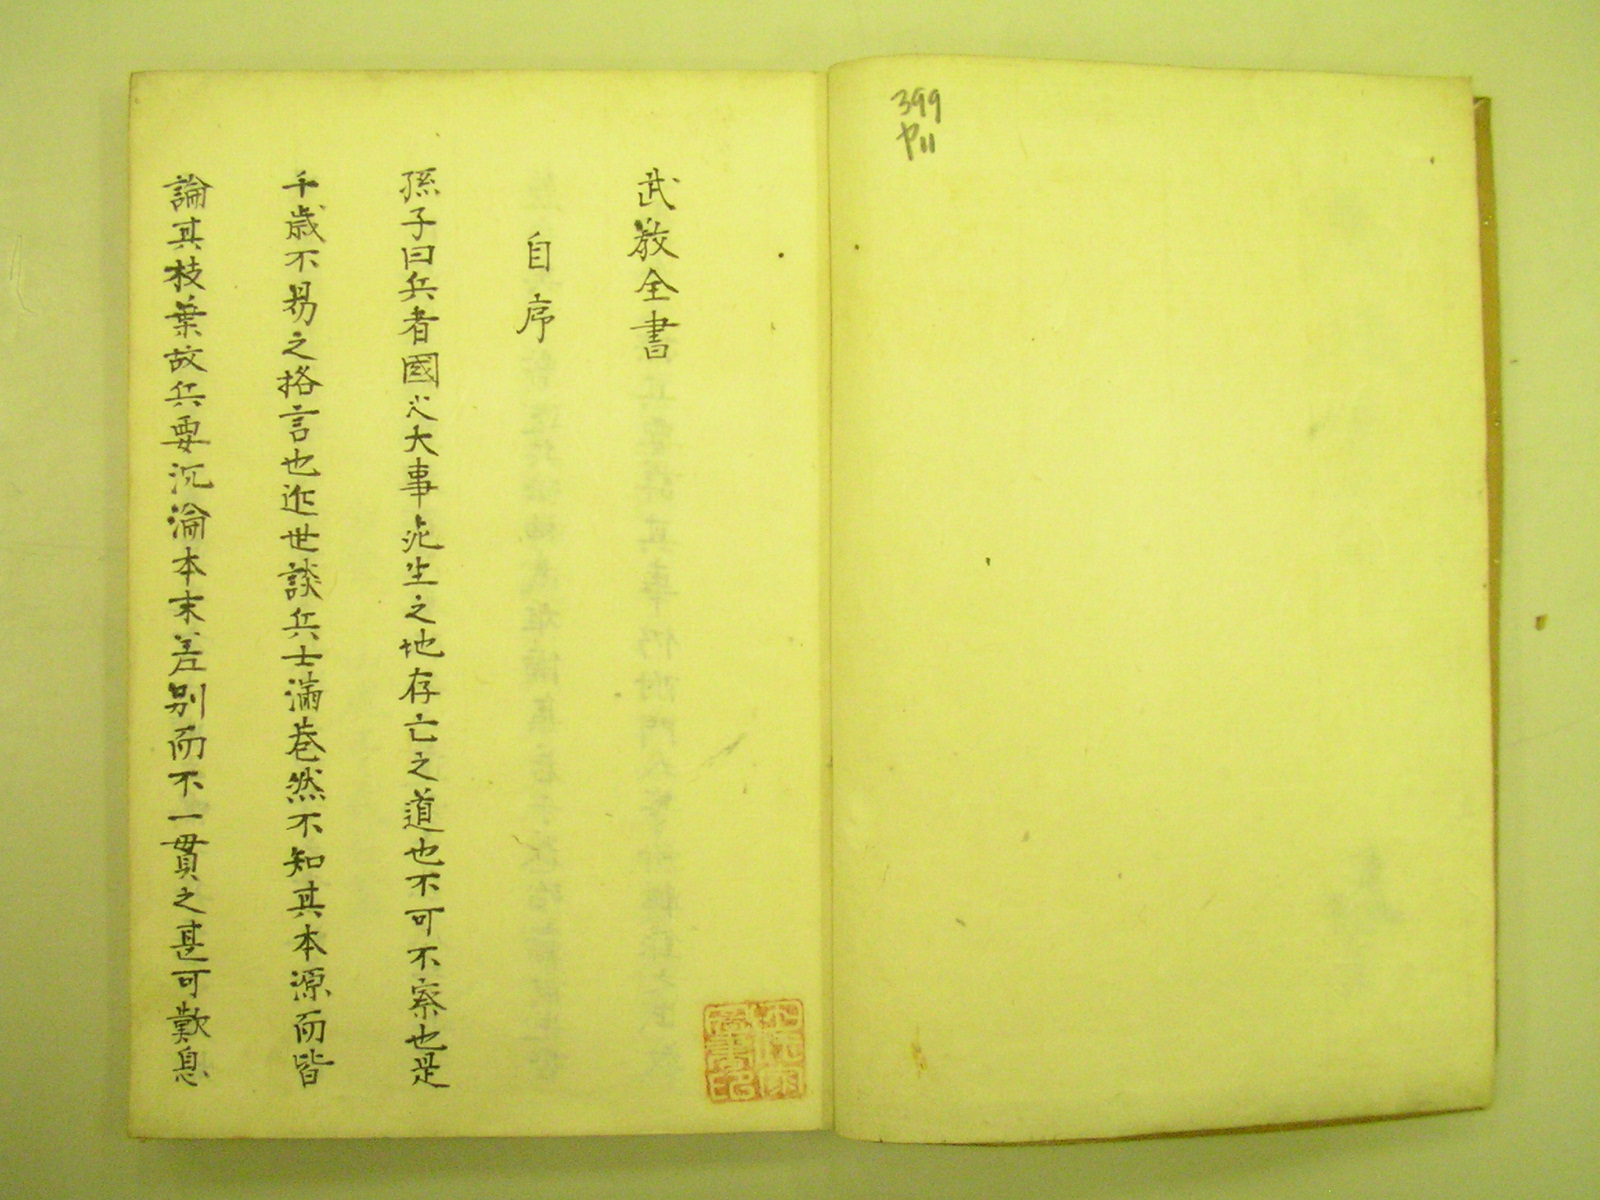 399
ヤ11
武教全書
自序
孫子曰兵者國之大事死生之地存亡之道也不可不察也是
千歳不易之格言也近世談兵士滿巷然不知其本源而皆
論其枝葉故兵要沉淪本末差別而不一貫之甚可歎息